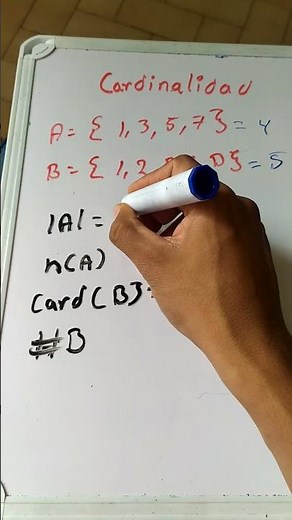 Cardinalidad
A = { 1, 3, 5, 7 } = 4
B = { 1, 2 } = 5
|A| =
n(A)
Card(B) =
#B